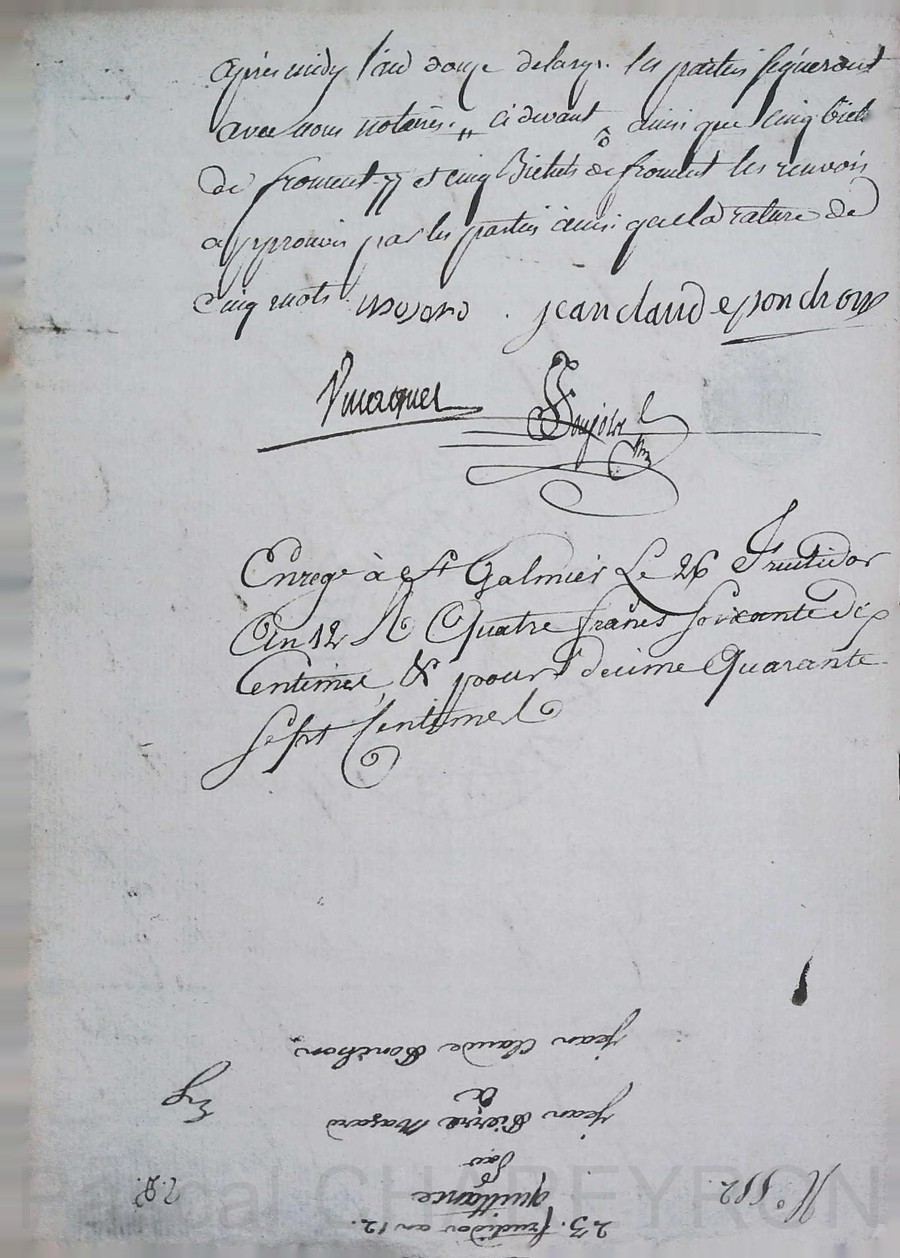 après midy l'an douze de la rep. les parties signeront
avec nous notaires. " ci devant ô ainsi que cinq bich
de froment 77 et cinq Bichets de froment les renvois
approuvés par les parties ainsi que la rature de
cinq mots. Masard . jean claud eponchon
Soujolx
Enregé à St Galmier Le 26 Fruitidor
An 12 R Quatre francs Soixante dix
Centimes, & pour decime Quarante
Sept Centimes
N° 512.
23. fruidor an 12.
quittance
par
jean Pierre Mazard
a
jean Claude Ponchon
Exp
Pascal CHAPEYRON